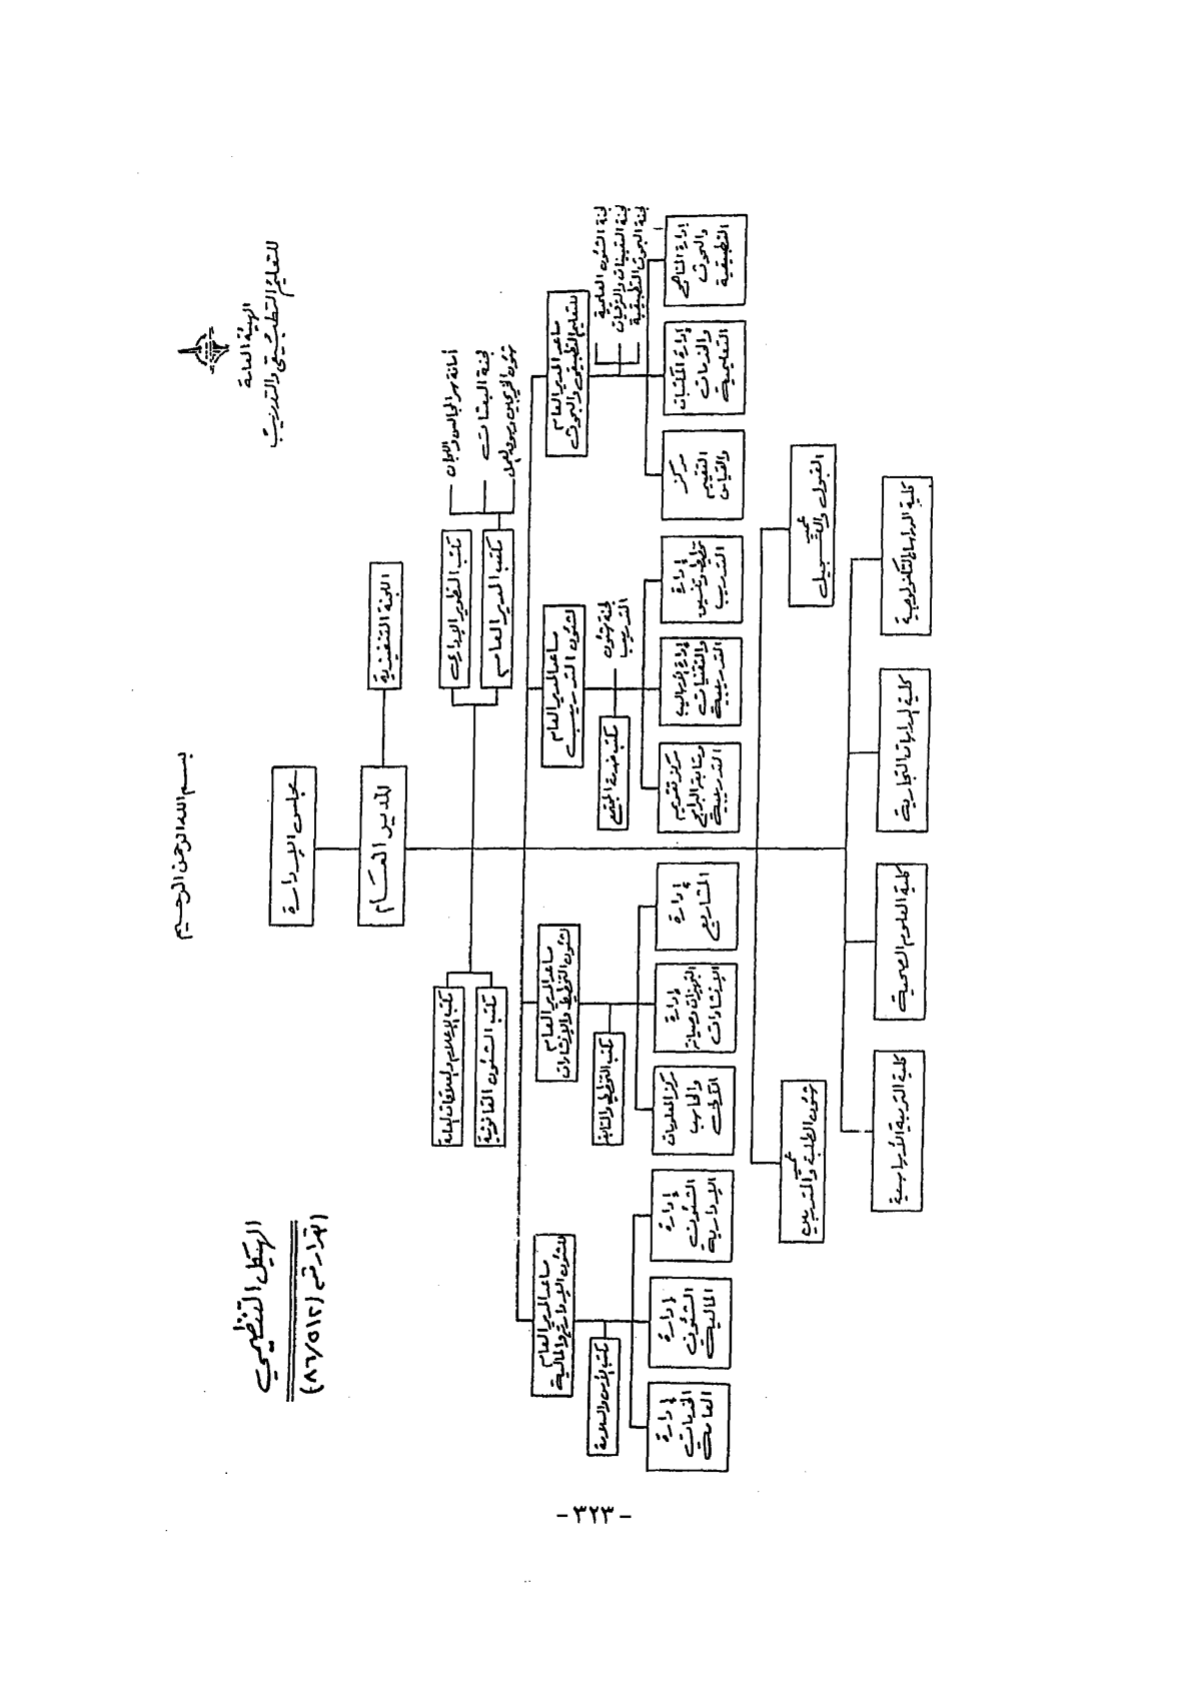 بسم الله الرحمن الرحيم
الهيئة العامة
للتعليم التطبيقي والتدريب
الهيكل التنظيمي
(القرار رقم ٨٦/٥١٢)
مجلس الإدارة
المدير العام
اللجنة التنفيذية
مكتب التطوير الإداري
مكتب المدير العام
أمانة سر المجالس واللجان
لجنة البعثات
شئون الخريجين وسوق العمل
مكتب الإعلام والعلاقات العامة
مكتب الشئون القانونية
مساعد المدير العام
للتعليم التطبيقي والبحوث
لجنة الشئون العلمية
لجنة التعيينات والترقيات
لجنة البحوث التطبيقية
إدارة المناهج
والبحوث
التطبيقية
إدارة المكتبات
والخدمات
التعليمية
مركز
التقييم
والقياس
مساعد المدير العام
لشئون التدريب
لجنة شئون
التدريب
مكتب خدمة المجتمع
إدارة
تخطيط وتنسيق
التدريب
إدارة الأساليب
والتقنيات
التدريبية
مركز تقويم
ومتابعة البرامج
التدريبية
مساعد المدير العام
لشئون التخطيط والإنشاءات
مكتب التخطيط والمتابعة
إدارة
المشاريع
إدارة
التجهيزات وصيانة
الإنشاءات
مركز المعلومات
والحاسب
الآلي
مساعد المدير العام
للشئون الإدارية والمالية
مكتب الأمن والسلامة
إدارة
الشئون
الإدارية
إدارة
الشئون
المالية
إدارة
الخدمات
العامة
عميد
القبول والتسجيل
عميد
شئون الطلبة والمتدربين
كلية الدراسات التكنولوجية
كلية الدراسات التجارية
كلية العلوم الصحية
كلية التربية الأساسية
- ٣٢٣ -